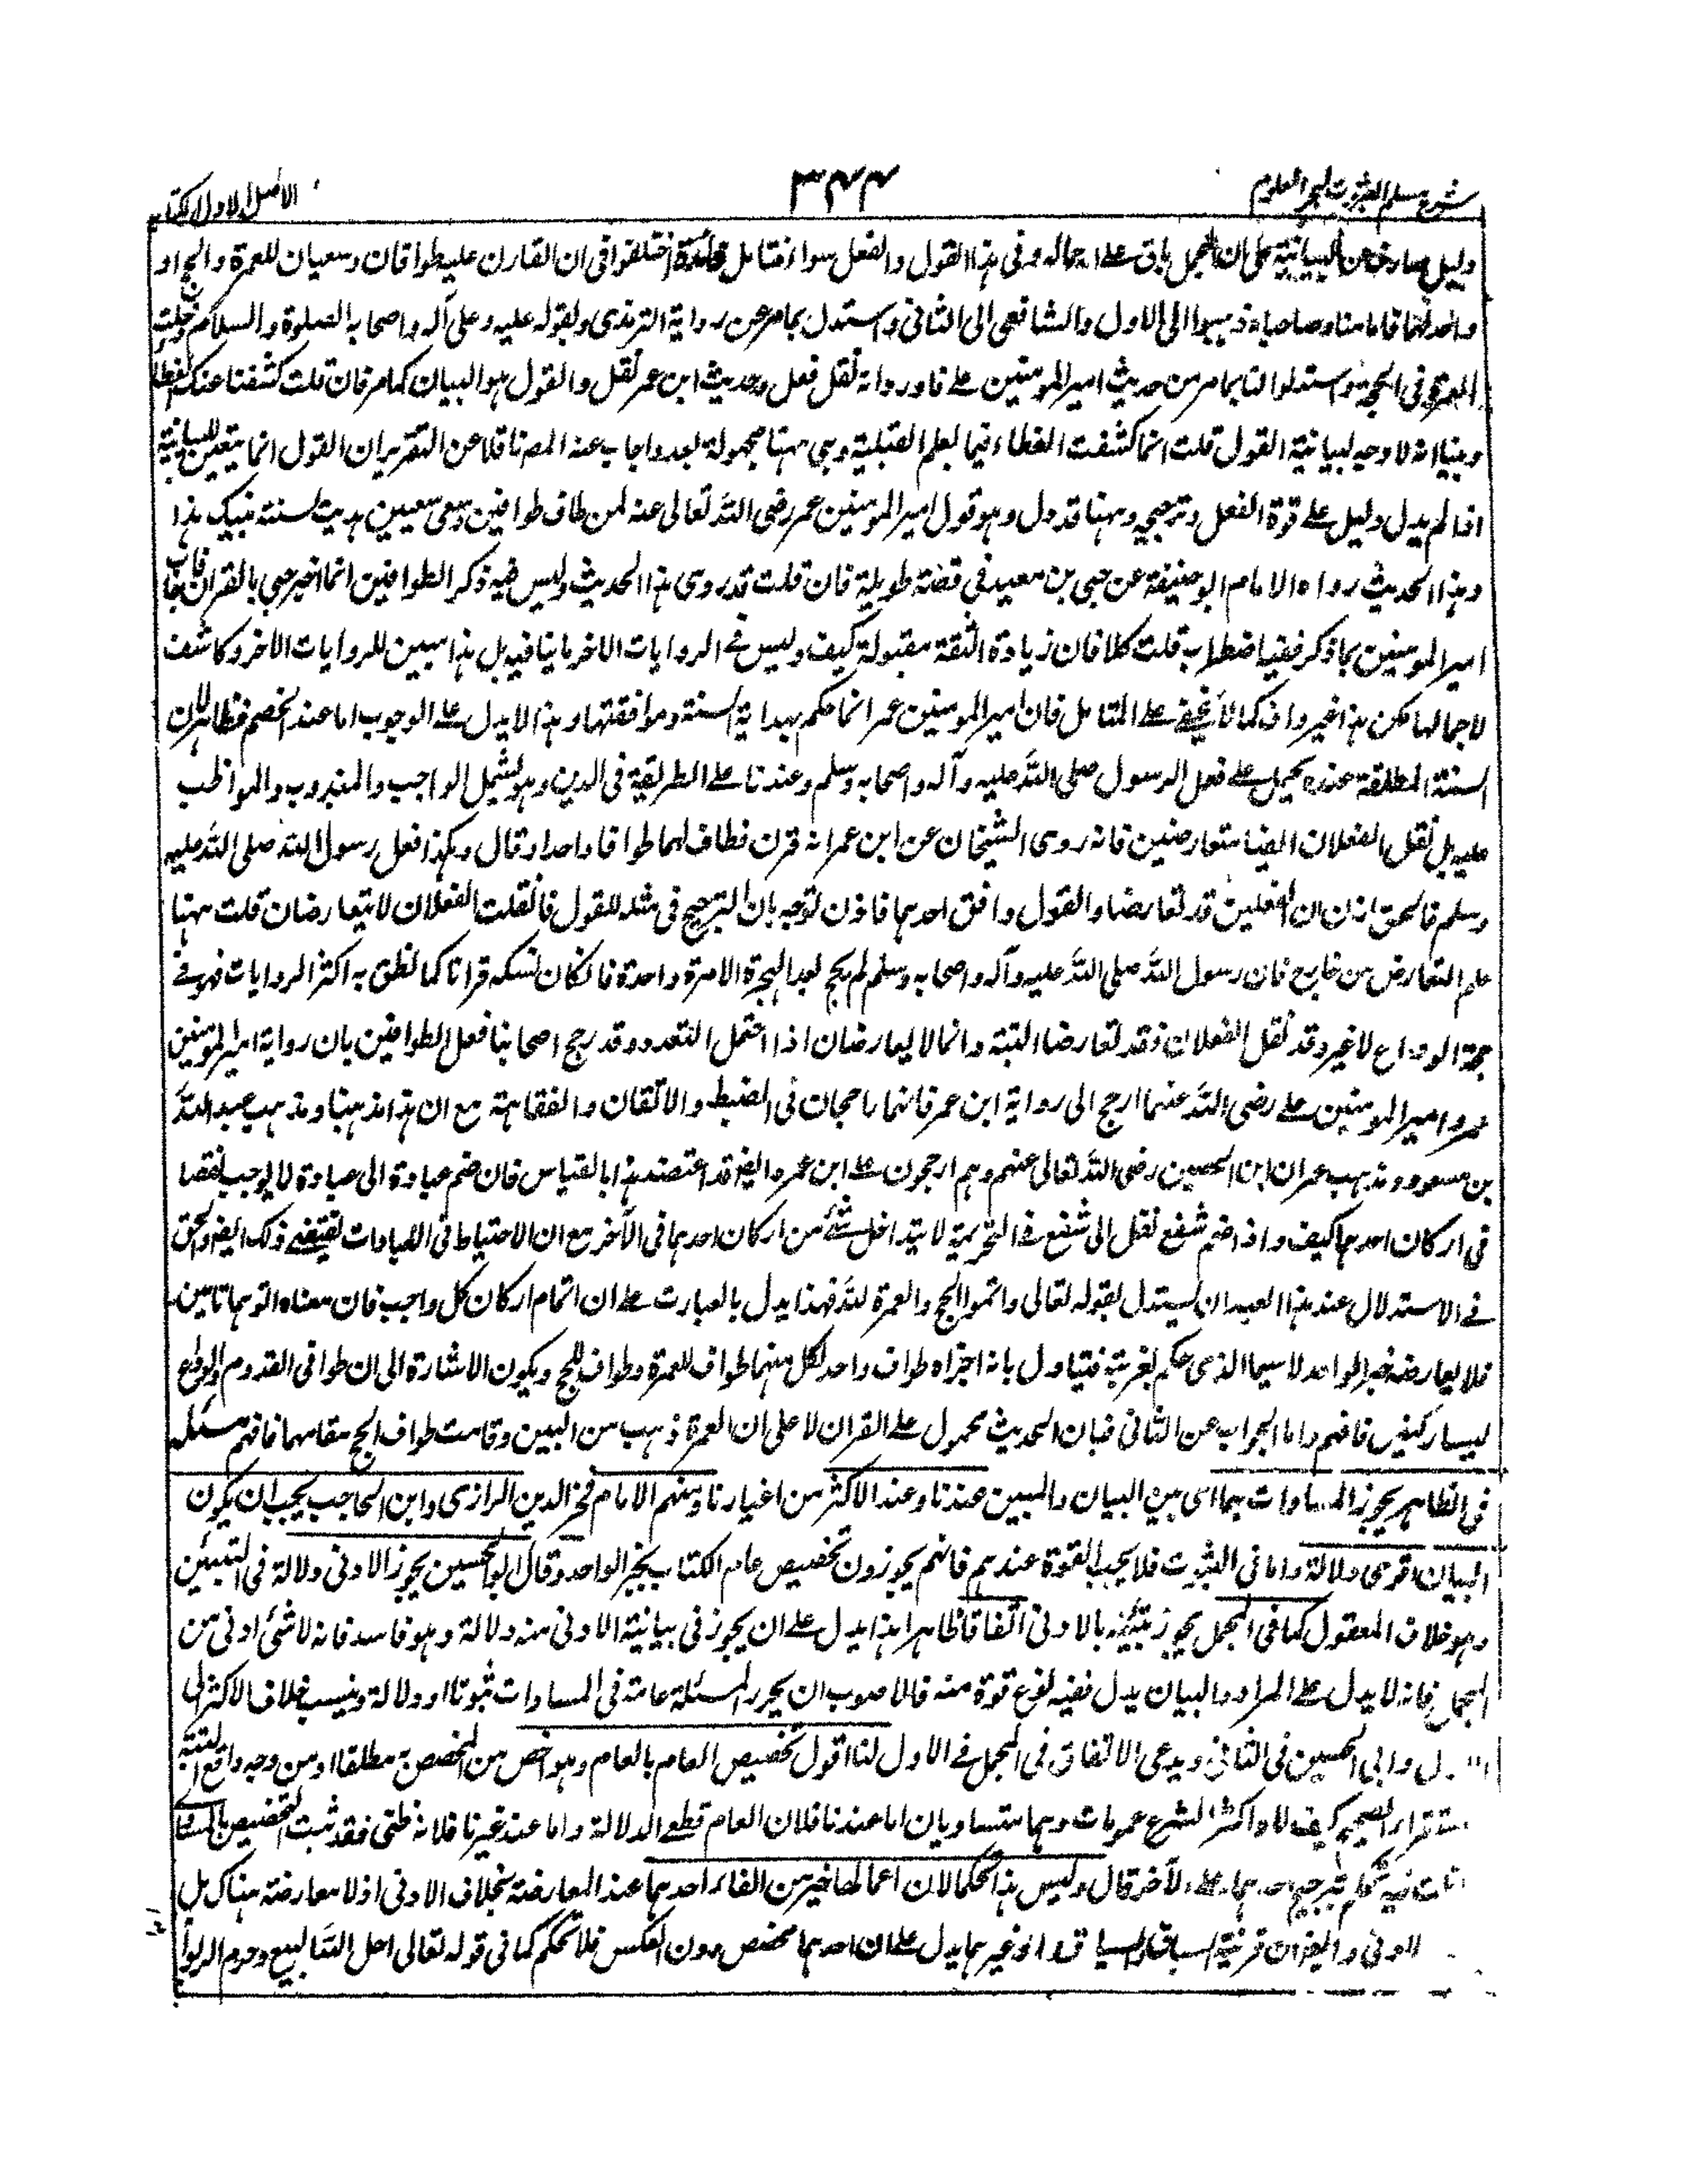 شرح مسلم الثبوت لبحر العلوم
٣٤٤
الاصل الاول الكتاب
دليل صارف عن البيانية على ان المجمل باق على اجماله وفى هذا القول والفعل سواء فتامل فائدة اختلفوا فى ان القارن عليه طوافان وسعيان للعمرة والحج او
واحد لهما فامامنا وصاحباه ذهبوا الى الاول والشافعى الى الثانى واستدل بما مر عن رواية الترمذى ولقوله عليه وعلى آله واصحابه الصلوة والسلام دخلت
العمرة فى الحجة واستدلوا لنا بما مر من حديث امير المومنين على فاورد انه نقل فعل وحديث ابن عمر نقل والقول هو البيان كما مر فان قلت كشفنا عنك الغطاء
وبينا انه لا وجه لبيانية القول قلت انما كشفت الغطاء فيما لعلم القبلية وهى ههنا مجهولة لعد واجاب عنه المصـ ناقلا عن التقرير ان القول انما يتعين للبيانية
اذا لم يدل دليل على قوة الفعل وترجيحه وههنا قد دل وهو قول امير المومنين عمر رضى الله تعالى عنه لمن طاف طوافين وسعى سعيين هديت لسنة نبيك هذا
وهذا الحديث رواه الامام ابو حنيفة عن صبى بن معبد فى قصة طويلة فان قلت قد روى هذا الحديث وليس فيه ذكر الطوافين انما اخبر صبى بالقران فاجاب
امير المومنين بما ذكر ففيه اضطراب قلت كلا فان زيادة الثقة مقبولة كيف وليس فى الروايات الاخر ما ينافيه بل هذا مبين للروايات الاخر وكاشف
لاجمالها لكن هذا غير واف كما لا يخفى على المتامل فان امير المومنين عمر انما حكم بهداية السنة وموافقتها وهذا لا يدل على الوجوب اما عند الخصم فظاهر لان
السنة المطلقة عنده يحمل على فعل الرسول صلى الله عليه وآله واصحابه وسلم وعندنا على الطريقة فى الدين وهو يشمل الواجب والمندوب والمواظب
عليه بل نقل الفعلان ايضا متعارضين فانه روى الشيخان عن ابن عمر انه قرن فطاف لهما طوافا واحدا وقال وهكذا فعل رسول الله صلى الله عليه
وسلم فالحق اذن ان الفعلين قد تعارضا والقول وافق احدهما فاذن توجه بان الترجيح فى مثله للقول فان قلت الفعلان لا يتعارضان قلت ههنا
علم التعارض من خارج فان رسول الله صلى الله عليه وآله واصحابه وسلم لم يحج بعد الهجرة الا مرة واحدة فان كان نسكه قرانا كما نطق به اكثر الروايات فهو فى
حجة الوداع لا غير وقد نقل الفعلان فقد تعارضا البتة وانما لا يعارضان اذا احتمل التعدد وقد رجح اصحابنا فعل الطوافين بان رواية امير المومنين
عمر وامير المومنين على رضى الله عنهما ارجح الى رواية ابن عمر فانهما راجحان فى الضبط والاتقان والفقاهة مع ان هذا مذهبنا ومذهب عبد الله
بن مسعود ومذهب عمران ابن الحصين رضى الله تعالى عنهم وهم ارجحون على ابن عمر وايضا قد اعتضد هذا بالقياس فان ضم عبادة الى عبادة لا يوجب نقصا
فى اركان احدهما كيف واذا ضم شفع نفل الى شفع فى التحريمة لا يتداخل شئ من اركان احدهما فى الآخر مع ان الاحتياط فى العبادات يقتضى ذلك ايضا والحق
فى الاستدلال عند هذا العبد ان يستدل بقوله تعالى واتموا الحج والعمرة لله فهذا يدل بالعبارت على ان اتمام اركان كل واجب فان معناه ائتوا بهما تامين
فلا يعارضه خبر الواحد لا سيما الذى حكم بغربته فتياول بانه اجزاه طواف واحد لكل منهما طواف للعمرة وطواف للحج ويكون الاشارة الى ان طوافى القدوم والوداع
ليسا ركنين فافهم واما الجواب عن الثانى فبان الحديث محمول على القران لا على ان العمرة ذهب من البين وقامت طواف الحج مقامها فافهم مسئلة
فى الظاهر يجوز المساوات بهما اى بين البيان والمبين عندنا وعند الاكثر من اغيارنا ومنهم الامام فخر الدين الرازى وابن الحاجب يجب ان يكون
البيان اقوى دلالة واما فى الثبوت فلا يجب القوة عندهم فانهم يجوزون تخصيص عام الكتاب بخبر الواحد وقال ابو الحسين يجوز الادنى دلالة فى التبيين
وهو خلاف المعقول كما فى المجمل يجوز تبيينه بالادنى اتفاقا ظاهر هذا يدل على ان يجوز فى بيانية الادنى منه دلالة وهو فاسد فانه لا شئ ادنى من
المجمل فانه لا يدل على المراد والبيان يدل ففيه نوع قوة منه فالاصوب ان يحرر المسئلة عامة فى المساوات ثبوتا او دلالة وينسب خلاف الاكثر الى
ول وابى الحسين فى الثانى ويدعى الاتفاق فى المجمل فى الاول لنا اقول تخصيص العام بالعام وهو اخص من المخصص به مطلقا او من وجه واقع البتة
ستقراء الصحيح كيف لا واكثر الشرع عمومات وهما متساويان اما عندنا فلان العام قطعى الدلالة واما عند غيرنا فلانه ظنى فقد ثبت التخصيص بالمساوى
فيه تحكم ترجيح احدهما على الآخر قال وليس هذا تحكما لان اعمالهما خير من الغاء احدهما عند المعارضة بخلاف الادنى اذ لا معارضة هناك بل
لادنى وايضا ان قرينة السباق والسياق او غيرهما يدل على ان احدهما مخصص دون العكس فلا تحكم كما فى قوله تعالى احل الله البيع وحرم الربوا